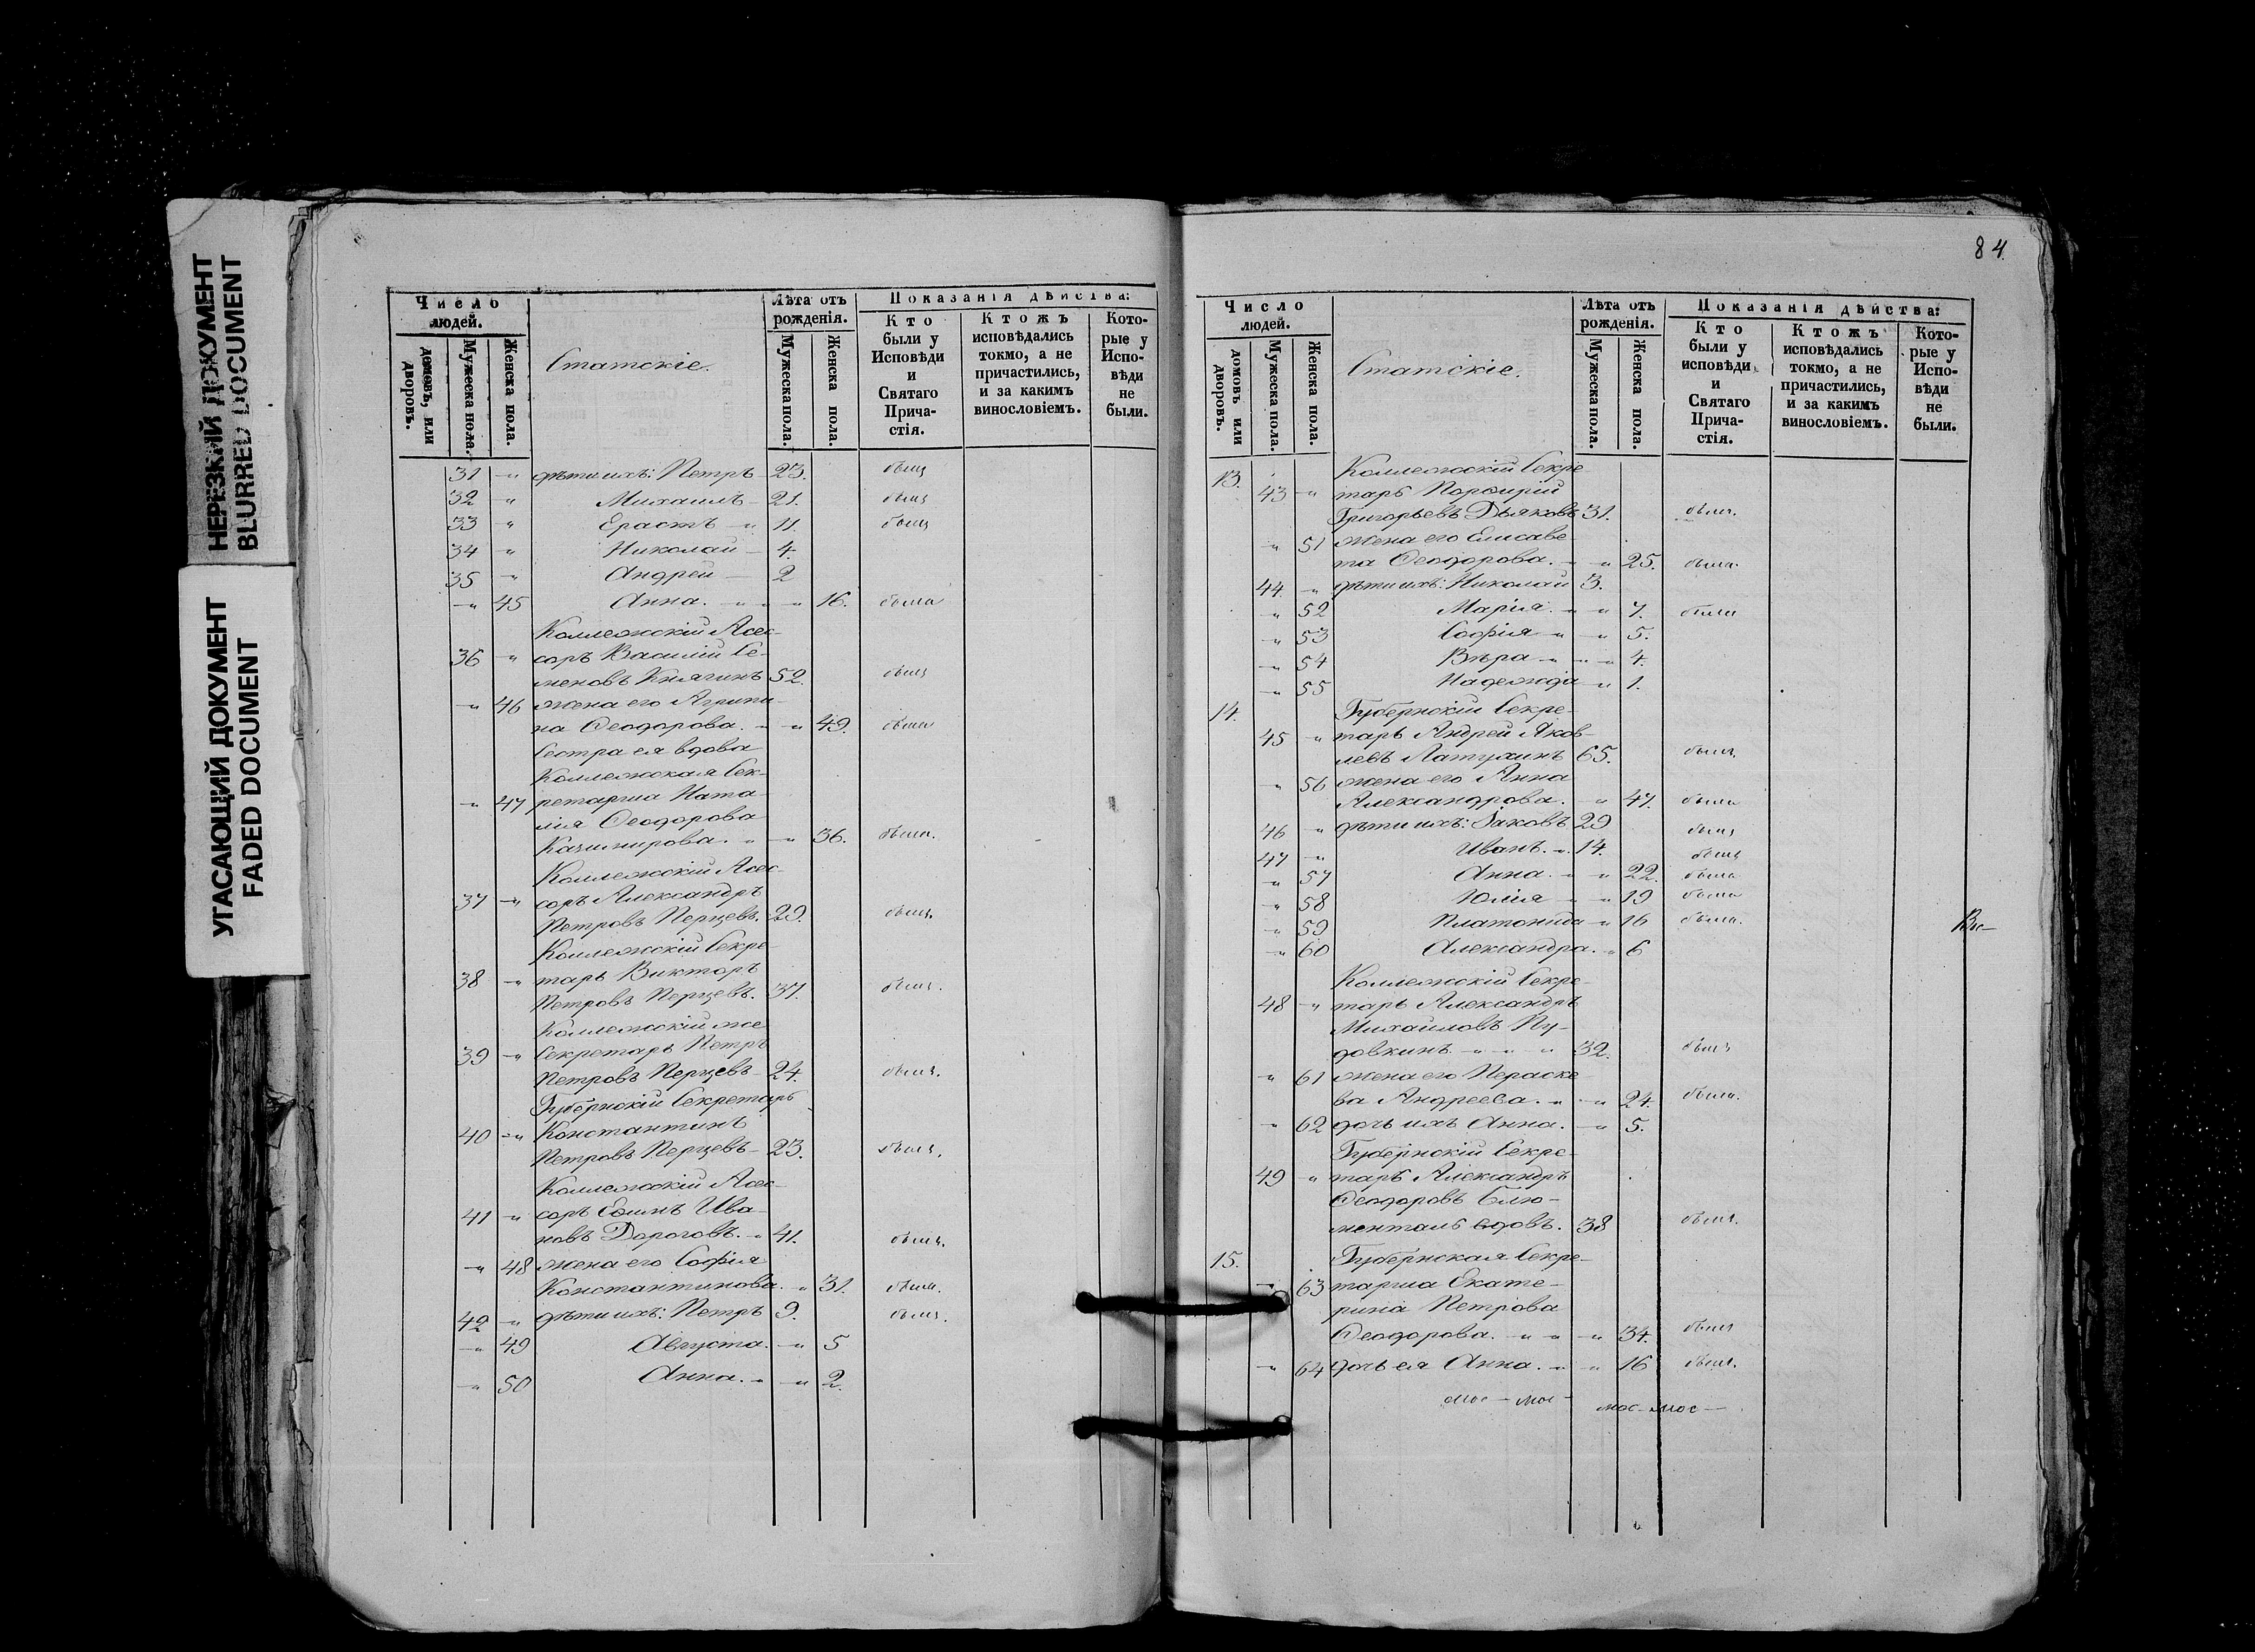 НЕРЕЗКИЙ ДОКУМЕНТ
BLURRED DOCUMENT
УГАСАЮЩИЙ ДОКУМЕНТ
FADED DOCUMENT
Число людей.
домовъ, или дворовъ.
Мужеска пола.
Женска пола.
Статскіе.
Лѣта отъ рожденія.
Мужеска пола.
Женска пола.
Показанія дѣйства:
Кто были у Исповѣди и Святаго Причастія.
Ктожъ исповѣдались токмо, а не причастились, и за какимъ винословіемъ.
Которые у Исповѣди не были.
31 " дѣти ихъ: Петръ 23. былъ
32 " Михаилъ 21. былъ
33 " Ерастъ 11. былъ
34 " Николай 4.
35 " Андрей 2
" 45 Анна. 16. была
Коллежскій Асес-
36 " соръ Василій Се-
меновъ Княгинъ 52. былъ
" 46 жена его Агрипи-
на Ѳеодорова. 49. была
Сестра ея вдова
Коллежская Сек-
" 47 ретарша Ната-
лія Ѳеодорова
Казимирова. 36. была.
Коллежскій Асес-
37 " соръ Александръ
Петровъ Перцевъ. 29. былъ.
Коллежскій Секре-
38 " тарь Викторъ
Петровъ Перцевъ. 37. былъ.
Коллежскій же
39 " Секретарь Петръ
Петровъ Перцевъ 24. былъ.
Губернскій Секретарь
40 " Константинъ
Петровъ Перцевъ 23. былъ.
Коллежскій Асес-
41 " соръ Ефимъ Ива-
новъ Дороговъ. 41. былъ.
" 48 жена его Софія
Константинова. 31. была.
42 " дѣти ихъ: Петръ 9. былъ.
" 49 Августа. 5
" 50 Анна. 2.
84.
Число людей.
домовъ или дворовъ.
Мужеска пола.
Женска пола.
Статскіе.
Лѣта отъ рожденія.
Мужеска пола.
Женска пола.
Показанія дѣйства:
Кто были у исповѣди и Святаго Причастія.
Ктожъ исповѣдались токмо, а не причастились, и за какимъ винословіемъ.
Которые у Исповѣди не были.
13. Коллежскій Секре
43 " тарь Порфирій
Григорьевъ Дьяковъ 31. былъ.
" 51 жена его Елисаве-
та Ѳеодорова. 25. была.
44 " дѣти ихъ: Николай 3.
" 52 Марія. 7. была
" 53 Софія 5.
" 54 Вѣра 4.
" 55 Надежда 1.
14. Губернскій Секре-
45 " тарь Андрей Яков-
левъ Латухинъ 65. былъ.
" 56 жена его Анна
Александрова. 47. была
46 " дѣти ихъ: Іаковъ 29 былъ
47 " Иванъ. 14. былъ
" 57 Анна. 22. была
" 58 Юлія 19 была
" 59 Платонида 16 была.
" 60 Александра. 6
Коллежскій Секре-
48 " тарь Александръ
Михайловъ Пу-
довкинъ 32. былъ
" 61 жена его Параске
ва Андреева. 24. была.
" 62 дочь ихъ Анна. 5.
Губернскій Секре-
49 " тарь Александръ
Ѳеодоровъ Блю-
менталь вдовъ. 38 былъ.
15. Губернская Секре-
" 63 тарша Екате-
рина Петрова
Ѳеодорова. 34. была
" 64 дочь ея Анна. 16 была.